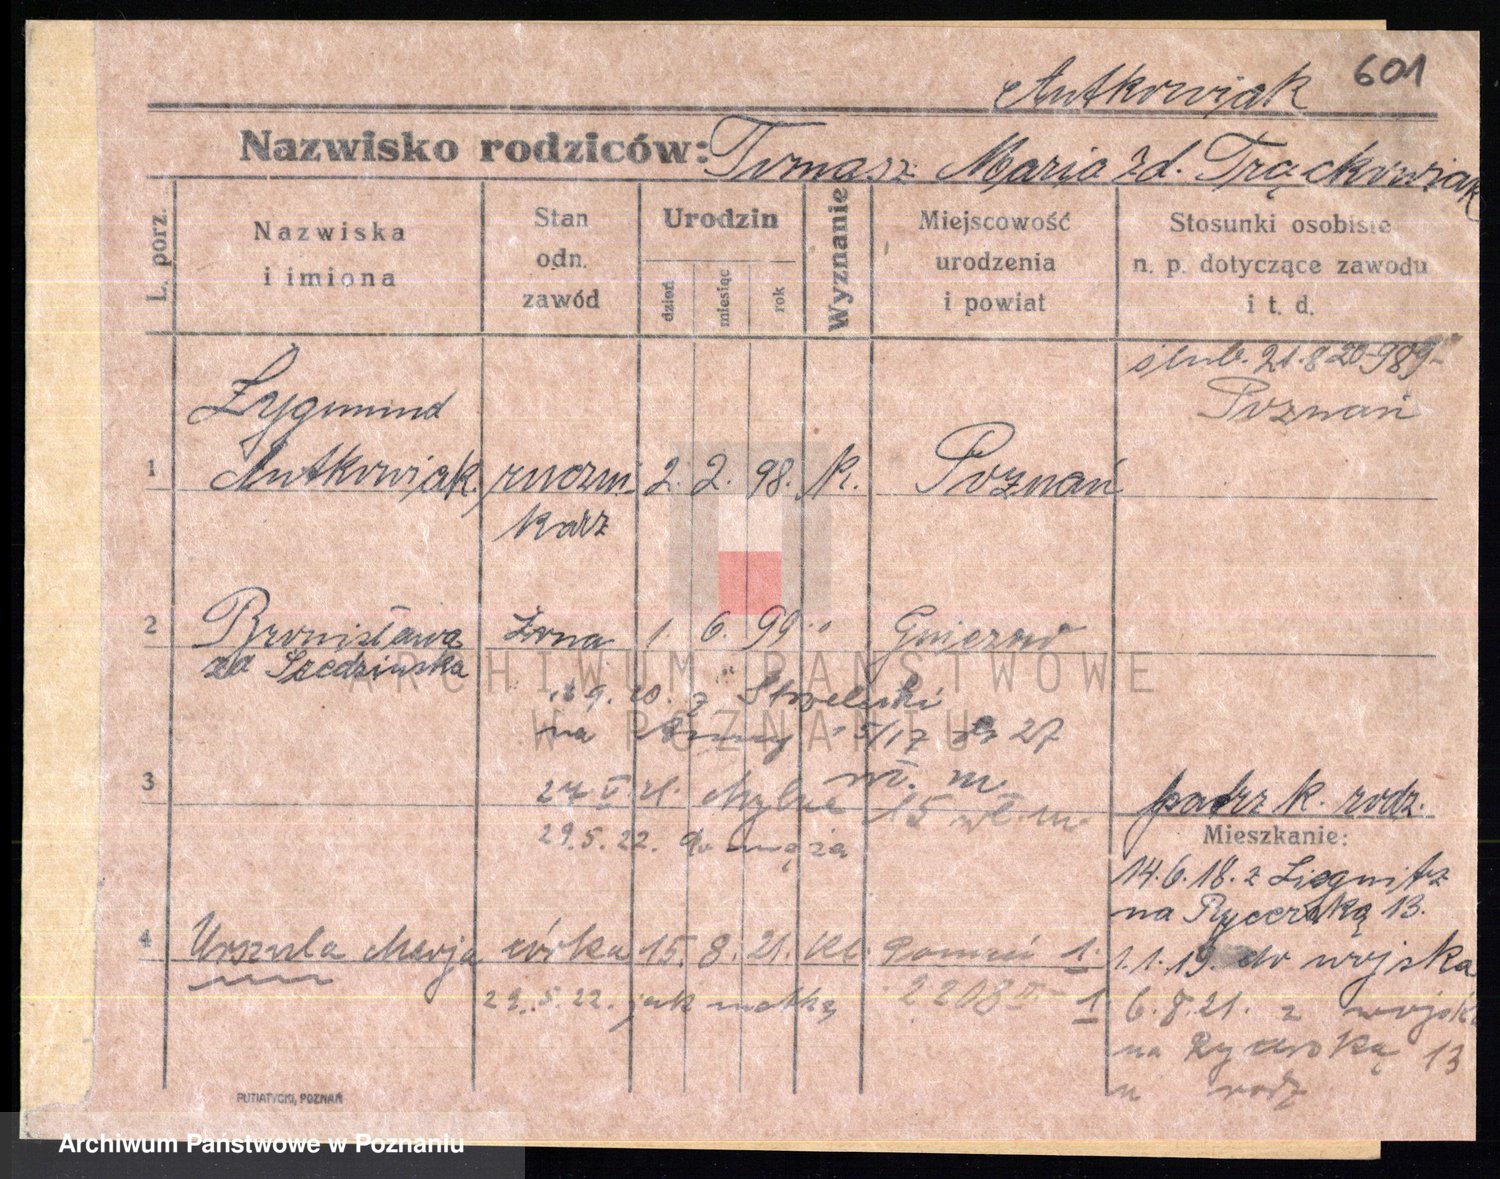 601
Antkowiak
Nazwisko rodziców: Tomasz Maria zd. Trąckowiak
L. porz.
Nazwiska
i imiona
Stan
odn.
zawód
Urodzin
dzień
miesiąc
rok
Wyznanie
Miejscowość
urodzenia
i powiat
Stosunki osobiste
n. p. dotyczące zawodu
i t. d.
ślub. 21.8 20-989-
Poznań
Zygmund
1 Antkowiak, 2. 2. 98. K. Poznań
karz
2 Bronisława żona 1. 6. 99 " Gniezno
zd Szedzińska
ARCHIWUM PAŃSTWOWE
W POZNANIU
9. 20. z Strzelecki
na 15/17 27
wł. m.
3 21. 15 wł. m.
29.5.22. do męża
patrz k. rodz.
Mieszkanie:
14.6.18. z Liegnitz
na Rycerską 13.
4 Urszula Marja córka 15. 8. 21. kt. Poznań 1.
1.1.19. do wojska
29. 5. 22. jak matka 2208 II - 1
6.8.21. z wojska
na Rycerską 13
u rodz
PUTIATYCKI, POZNAŃ
Archiwum Państwowe w Poznaniu